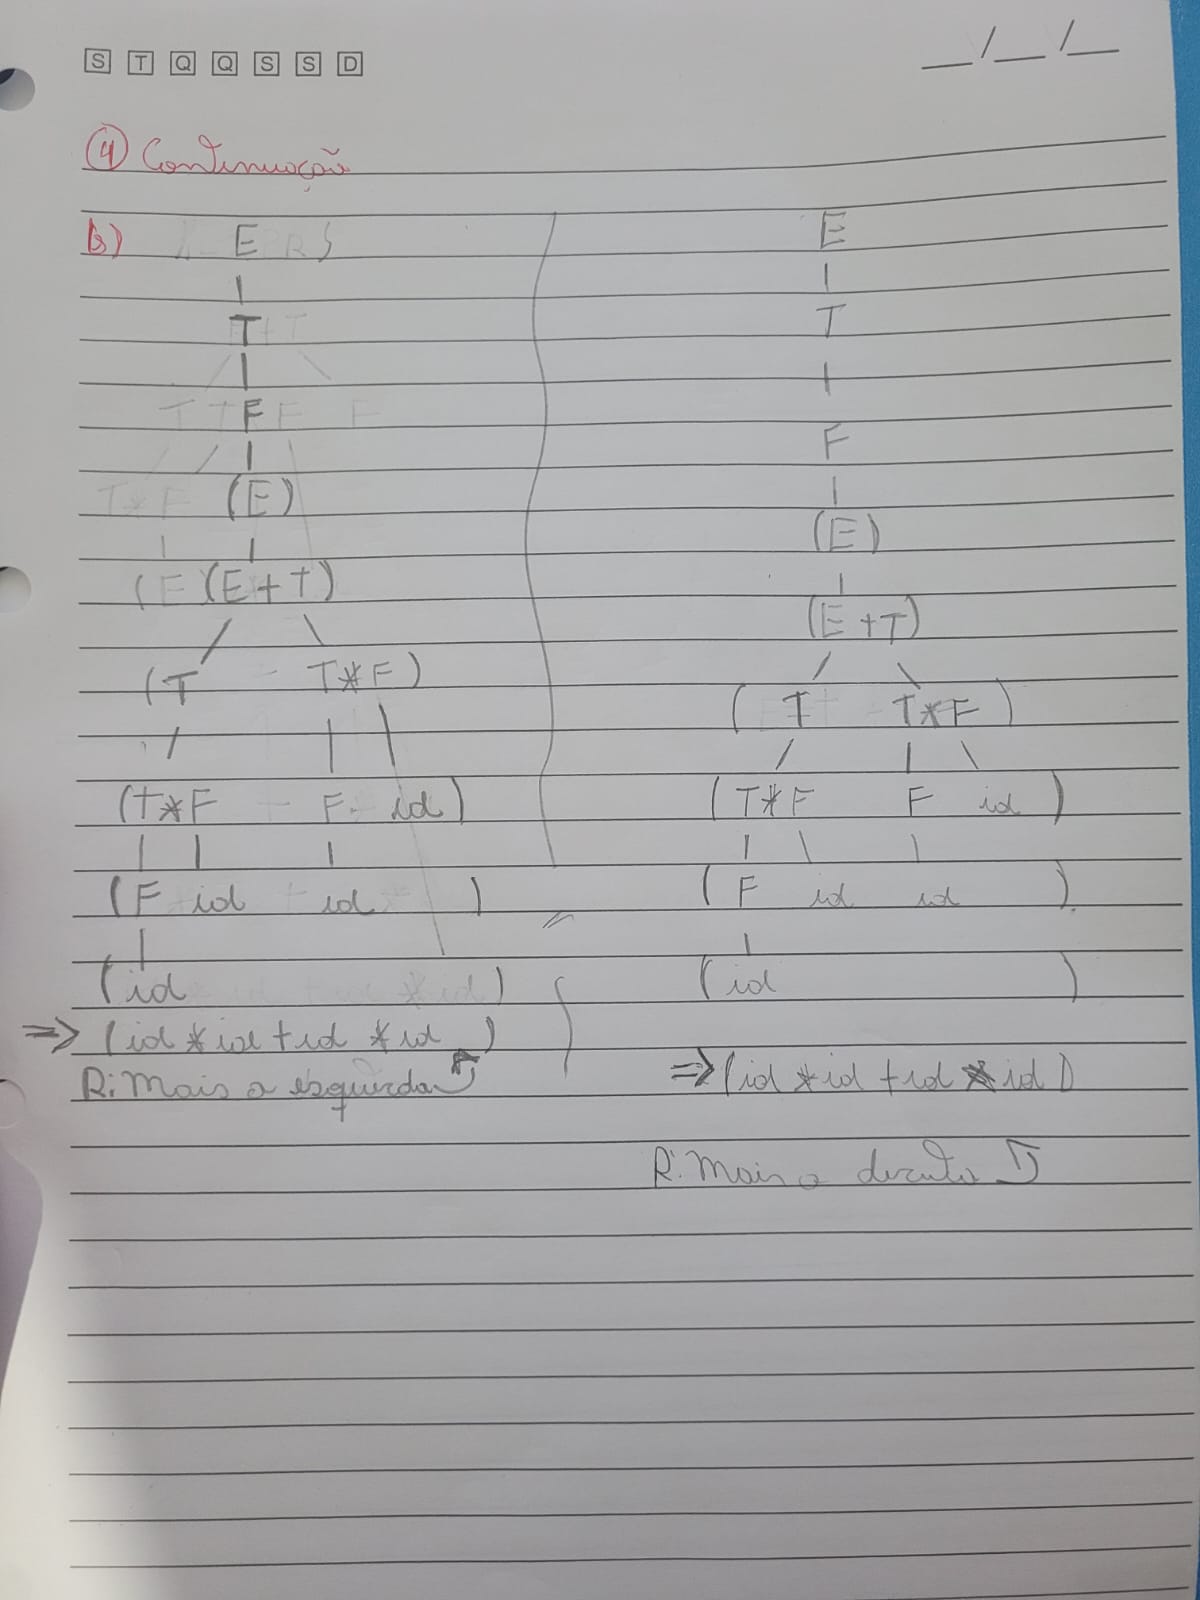 S T Q Q S S D
__/__/__
4 Continuação
b) E
T
F
(E)
(E+T)
(T T*F)
(T*F F id)
(F id id)
(id )
=> (id * id + id * id )
R: Mais a esquerda
E
T
F
(E)
(E+T)
( T T*F )
( T*F F id )
( F id id )
(id )
=> (id * id + id * id )
R: Mais a direita